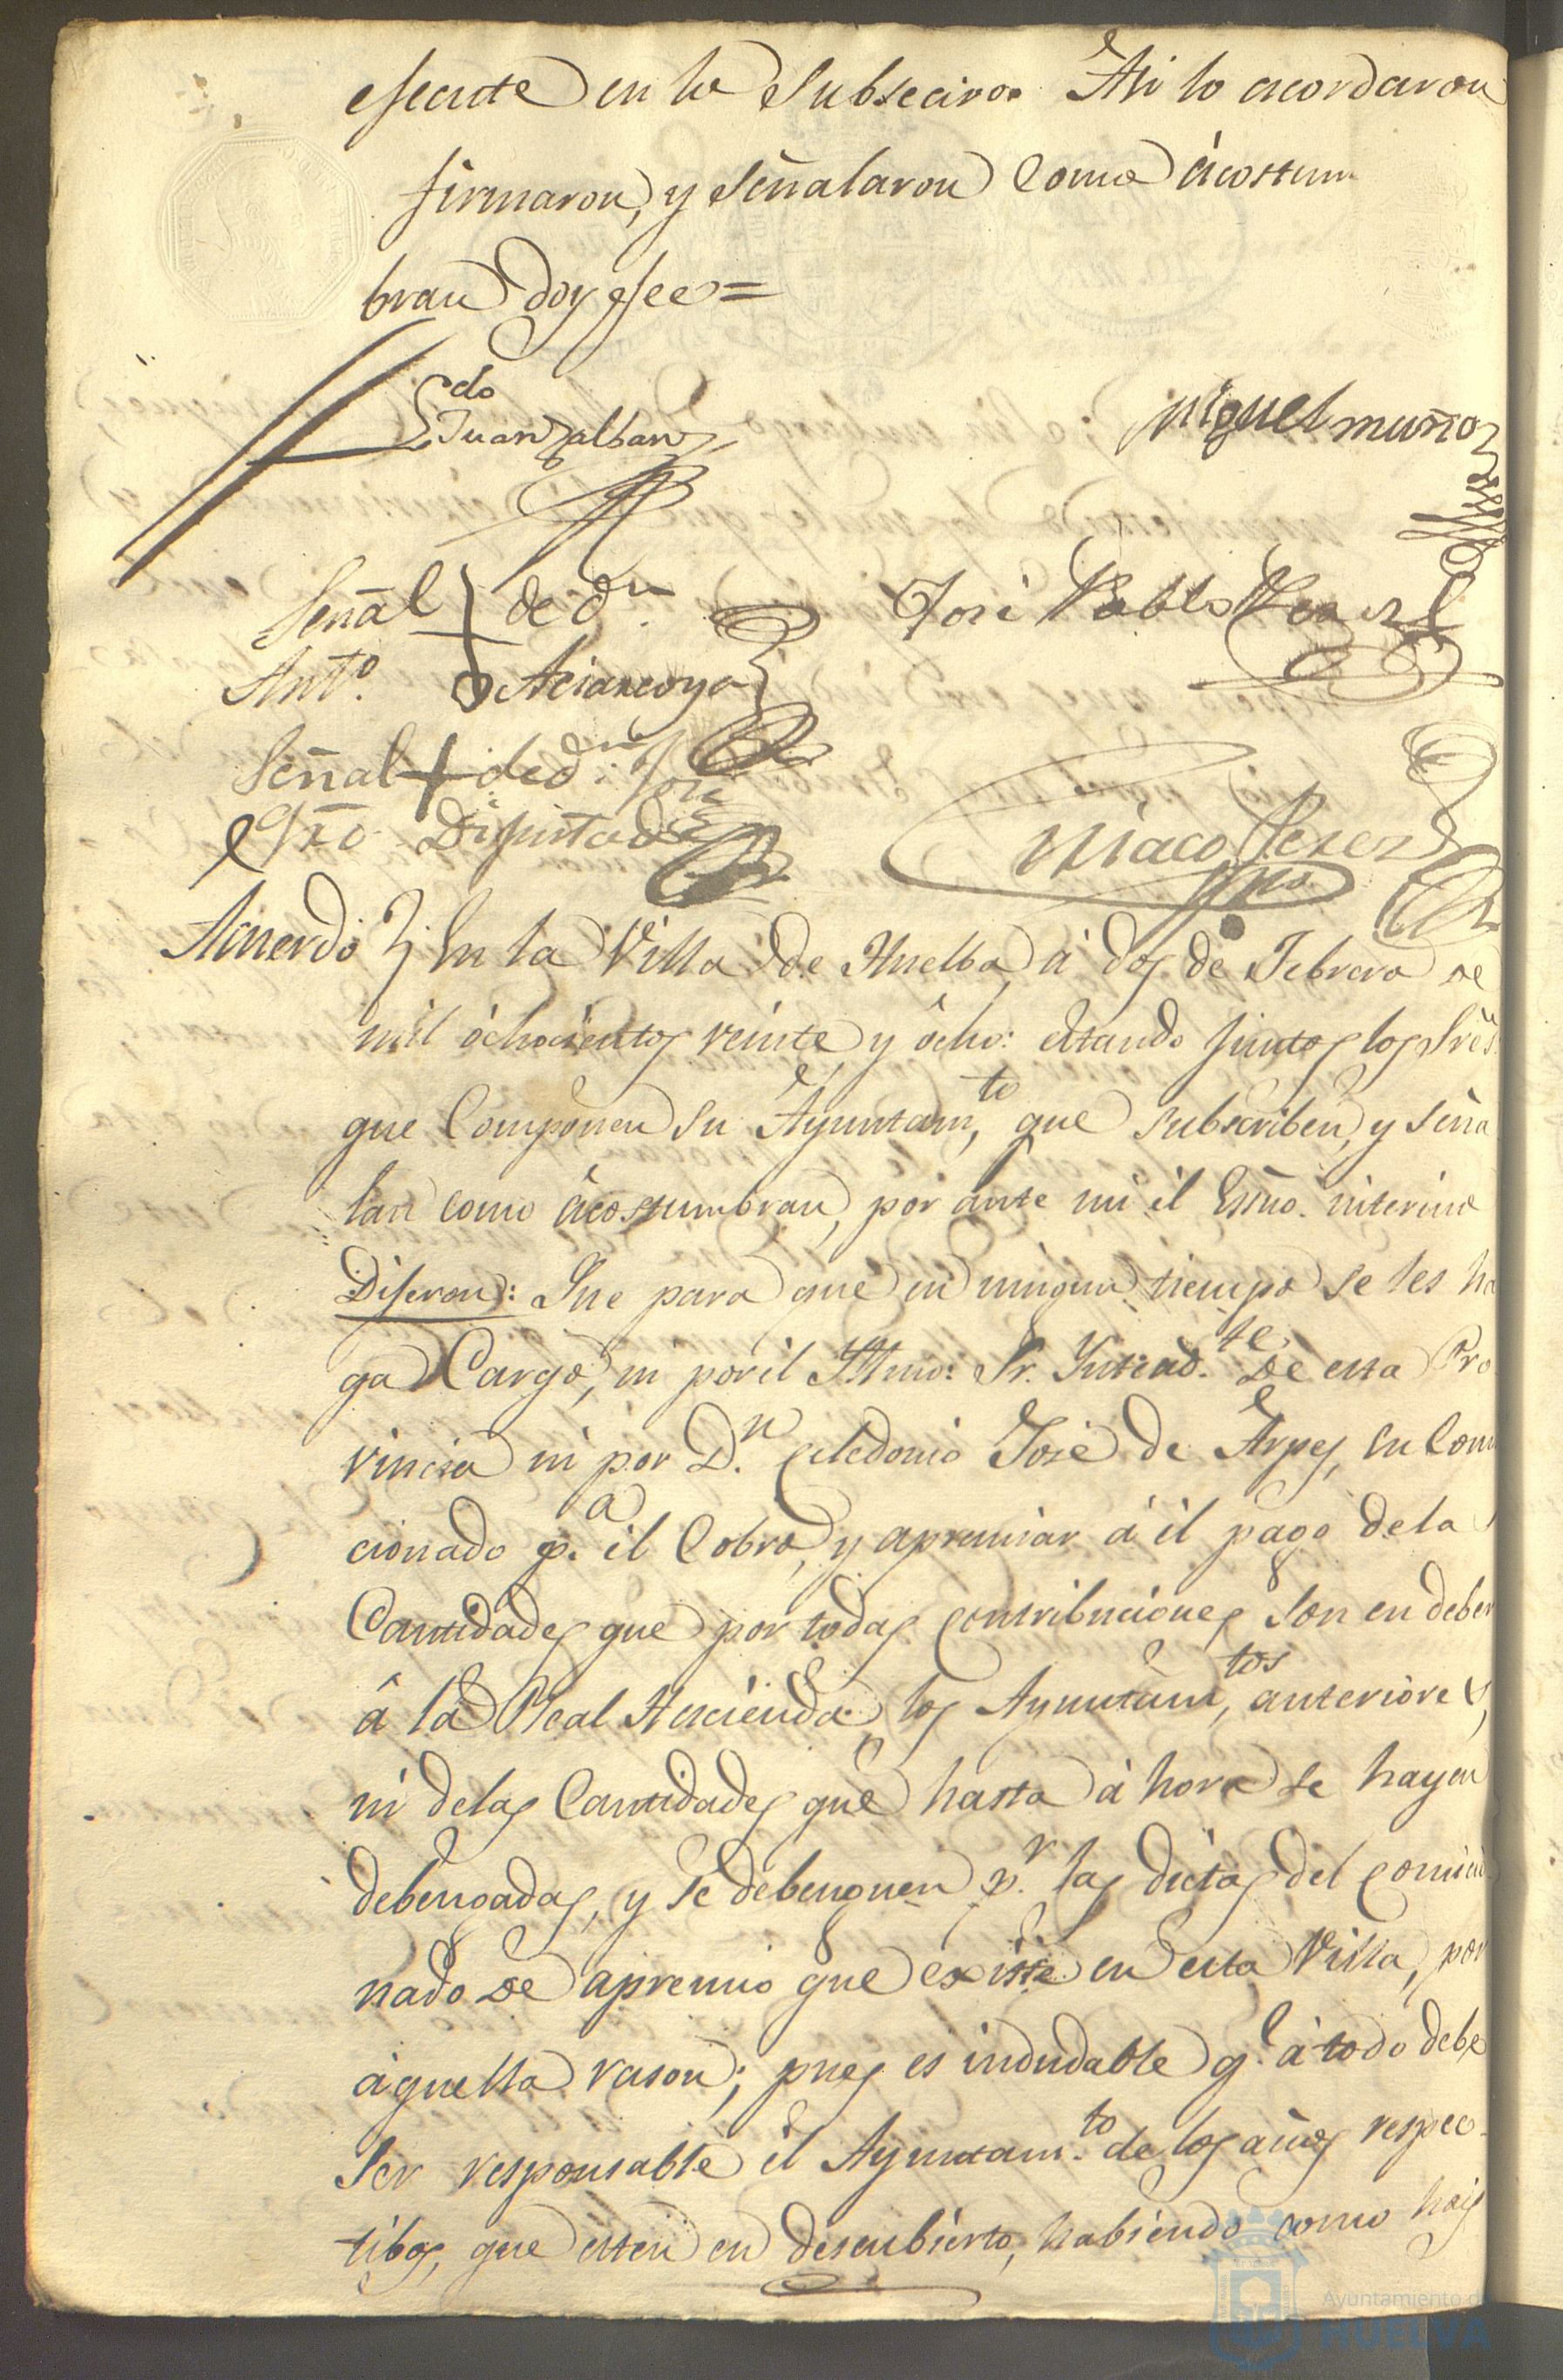 efecute en lo Subsecivo. Asi lo acordaron
firmaron, y señalaron como acostum
bran doy fee =
Ldo Juan Alban
Miguel Muñoz
Señal de dn.
José Pablo Perez
Anto.
Señal + de dn. José
Diputado
Ciriaco Perez
Acuerdo En la Villa de Huelba, á dos de Febrero de
mil ochocientos veinte, y ocho: estando juntos los Sres.
que componen su Ayuntamto, que subscriben, y seña
lan como acostumbran, por ante mi el Essno. interino
Digeron: Que para que en ningun tiempo se les ha
ga Cargo, ni por el Ytmo: Sr. Yntendte. de esta Pro
vincia ni por Dn. Celedonio José de Arpes, su Comi
cionado pa. el Cobro, y apremiar á el pago dela
Cantidades que por todas contribuciones son en deber
á la Real Hacienda, los Ayuntamtos, anteriores,
ni delas Cantidades que hasta á hora se hayan
debengadas, y se debenguen pr. las dietas del comicio
nado de apremio que existe en esta Villa, por
aquella rason; pues es indudable qe. á todo debe
ser responsable el Ayuntamto. de los años respec
tibos, que esten en descubierto, habiendo como hai
Ayuntamiento de
HUELVA